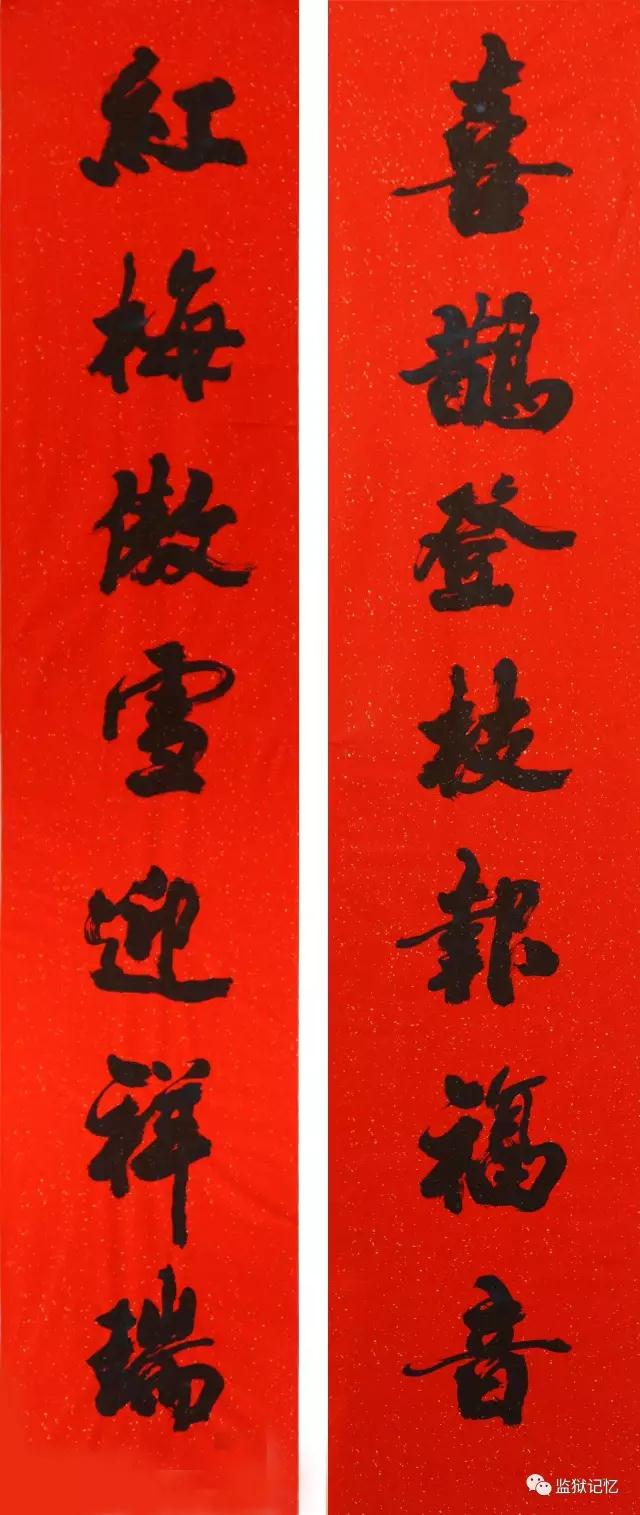 喜鵲登枝報福音
紅梅傲雪迎祥瑞
监狱记忆